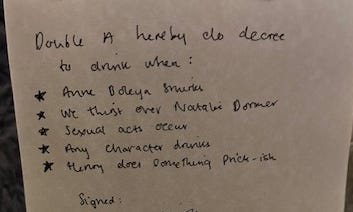 Double A hereby do decree
to drink when:
★ Anne Boleyn Smirks
★ We thirst over Natalie Dormer
★ Sexual acts occur
★ Any character drinks
★ Henry does Something Prick-ish
Signed: